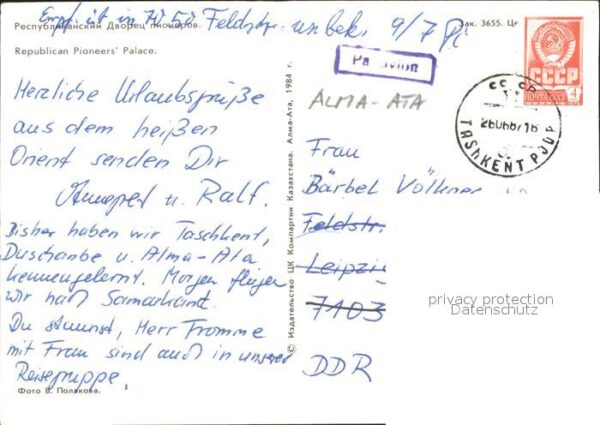 Empf. ist in 70 50 Feldstr. unbek. 9/7
Республиканский Дворец пионеров.
Зак. 3655. Це
Republican Pioneers' Palace.
Par avion
СССР
СССР
4
28068716
TASHKENT PJDP
ALMA-ATA
Herzliche Urlaubsgrüße
aus dem heißen
Orient senden Dir
Annegret u. Ralf.
Bisher haben wir Taschkent,
Duschanbe u. Alma-Ata
kennengelernt. Morgen fliegen
wir nach Samarkand.
Du staunst, Herr Fromme
mit Frau sind auch in unserer
Reisegruppe.
Фото В. Полякова.
© Издательство ЦК Компартии Казахстана. Алма-Ата, 1984 г.
Frau
Bärbel Völkner
Feldstr.
Leipzig
7103
DDR
privacy protection
Datenschutz